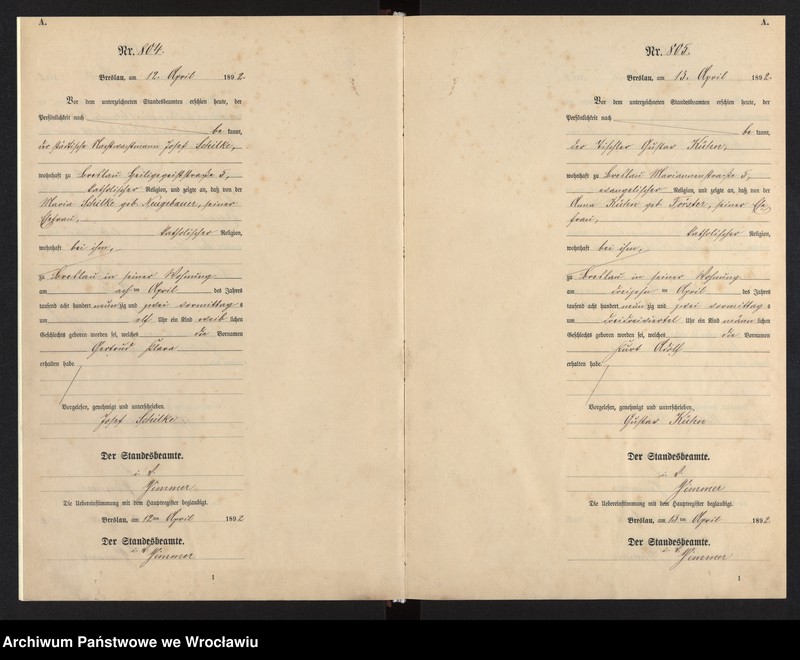 A.
Nr. 804.
Breslau, am 12. April 1892.
Vor dem unterzeichneten Standesbeamten erschien heute, der
Persönlichkeit nach
be kannt,
der städtische Josef Schilke,
wohnhaft zu Breslau Heiligegeiststraße 5,
katholischer Religion, und zeigte an, daß von der
Maria Schilke geb. Neugebauer, seiner
Ehefrau,
katholischer Religion,
wohnhaft bei ihm,
zu Breslau in seiner Wohnung
am acht April des Jahres
tausend acht hundert neun zig und zwei vormittag s
um elf Uhr ein Kind weib lichen
Geschlechts geboren worden sei, welches die Vornamen
Gertrud Klara
erhalten habe
Vorgelesen, genehmigt und unterschrieben.
Josef Schilke
Der Standesbeamte.
Zimmer
Die Uebereinstimmung mit dem Hauptregister beglaubigt.
Breslau, am 12ten April 1892
Der Standesbeamte.
Zimmer
1
A.
Nr. 805.
Breslau, am 13. April 1892.
Vor dem unterzeichneten Standesbeamten erschien heute, der
Persönlichkeit nach
be kannt,
der Tischler Gustav Kühn,
wohnhaft zu Breslau Mariannenstraße 5,
evangelischer Religion, und zeigte an, daß von der
Anna Kühn geb. Förster, seiner Ehe-
frau,
katholischer Religion,
wohnhaft bei ihm,
zu Breslau in seiner Wohnung
am April des Jahres
tausend acht hundert neun zig und zwei vormittag s
um dreidreiviertel Uhr ein Kind männ lichen
Geschlechts geboren worden sei, welches die Vornamen
Kurt Adolf
erhalten habe
Vorgelesen, genehmigt und unterschrieben.
Gustav Kühn
Der Standesbeamte.
Zimmer
Die Uebereinstimmung mit dem Hauptregister beglaubigt.
Breslau, am 13ten April 1892
Der Standesbeamte.
Zimmer
1
Archiwum Państwowe we Wrocławiu